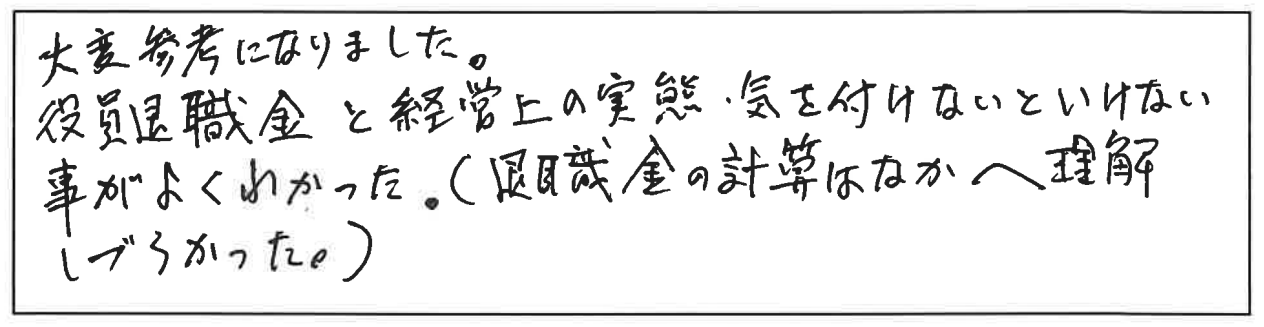 大変参考になりました。
役員退職金と経営上の実態・気を付けないといけない
事がよくわかった。(退職金の計算はなかへ理解
しづらかった。)